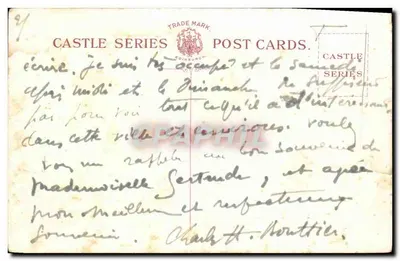 2/
TRADE MARK
CASTLE SERIES POST CARDS.
CASTLE
SERIES
écrire. Je suis très occupé et le samedi
après midi et le Dimanche ne suffisent
pas pour voir tout ce qu'il a d'intéressant
dans cette ville et environs. Voulez
vous me rappeler au bon souvenir de
Mademoiselle Gertrude, et
mon meilleur et respectueux
Souvenir. Charles H. Bouthier.